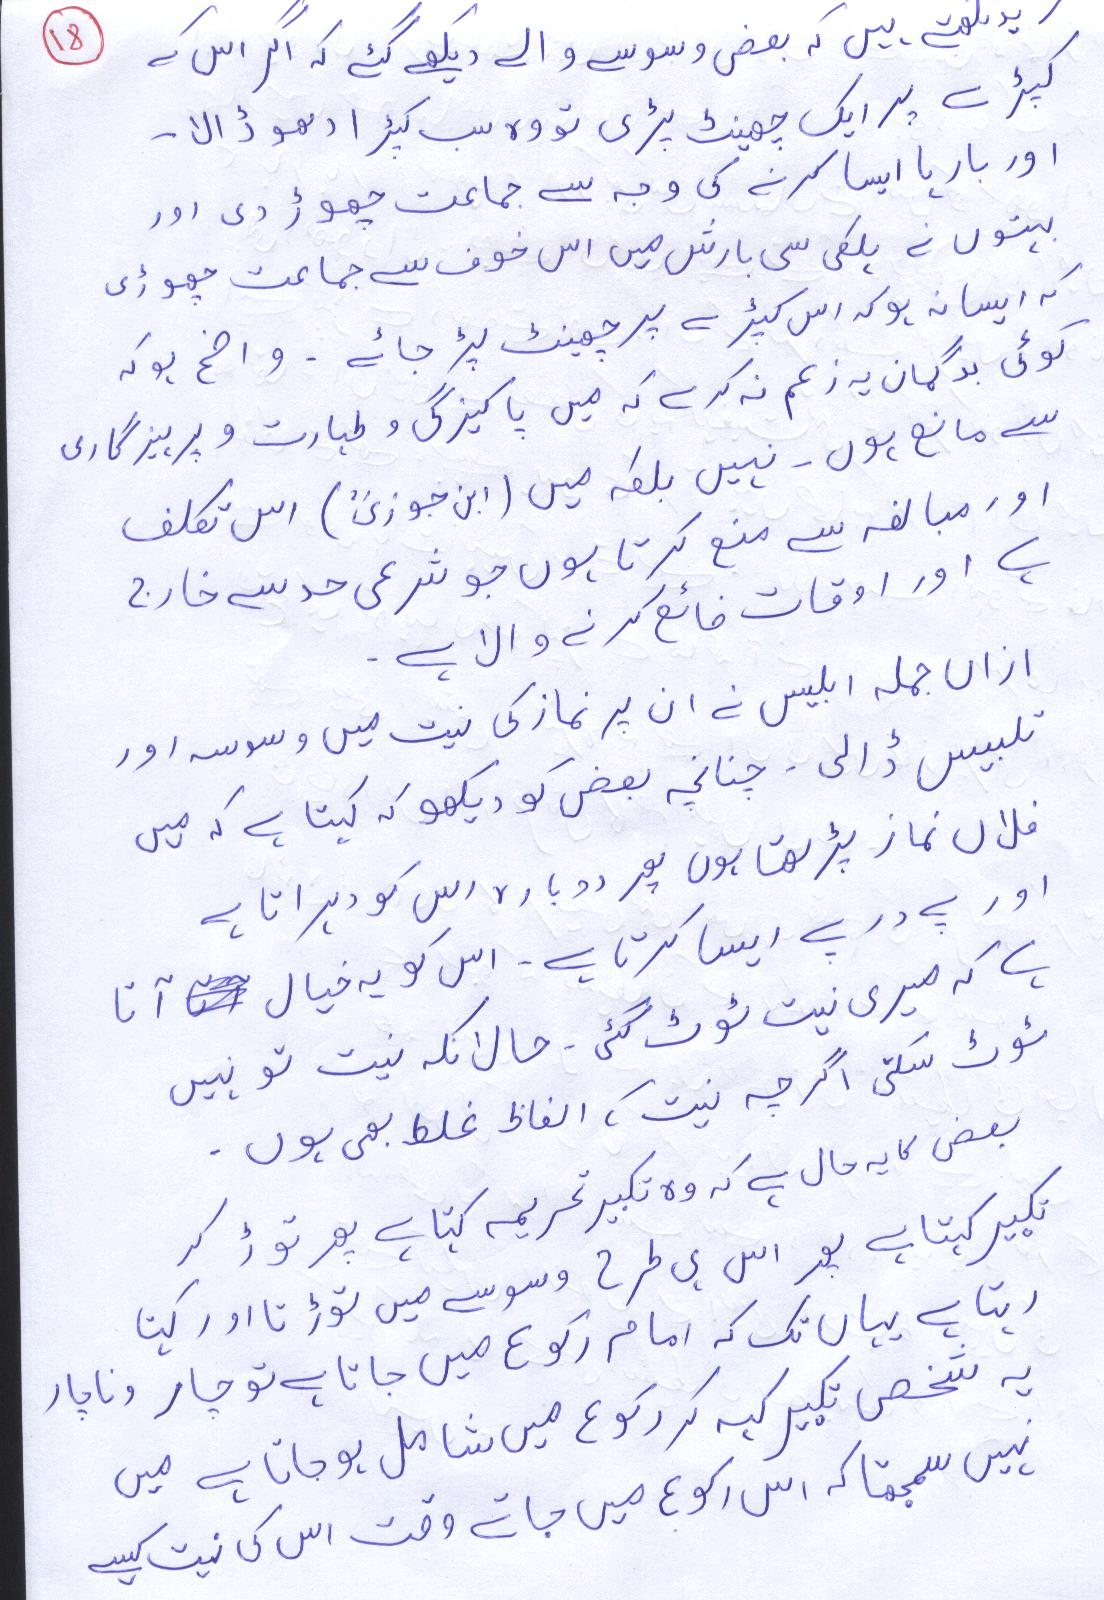 18
یہ لکھتے ہیں کہ بعض وسوسے والے دیکھے گئے کہ اگر اس کے
کپڑے پر ایک چھینٹ پڑی تو وہ سب کپڑا دھو ڈالا۔
اور بارہا ایسا کرنے کی وجہ سے جماعت چھوڑ دی اور
بہتوں نے ہلکی سی بارش میں اس خوف سے جماعت چھوڑی
کہ ایسا نہ ہو کہ اس کپڑے پر چھینٹ پڑ جائے ۔ واضح ہو کہ
کوئی بدگمان یہ زعم نہ کرے کہ میں پاکیزگی و طہارت و پرہیزگاری
سے مانع ہوں ۔ نہیں بلکہ میں (ابن جوزیؒ) اس تکلف
اور مبالغہ سے منع کرتا ہوں جو شرعی حد سے خارج
ہے اور اوقات ضائع کرنے والا ہے ۔
ازاں جملہ ابلیس نے ان پر نماز کی نیت میں وسوسہ اور
تلبیس ڈالی ۔ چنانچہ بعض کو دیکھو کہ کہتا ہے کہ میں
فلاں نماز پڑھتا ہوں پھر دوبارہ اس کو دہراتا ہے
اور پے درپے ایسا کرتا ہے ۔ اس کو یہ خیال آتا
ہے کہ میری نیت ٹوٹ گئی ۔ حالانکہ نیت تو نہیں
ٹوٹ سکتی اگرچہ نیت کے الفاظ غلط بھی ہوں ۔
بعض کا یہ حال ہے کہ وہ تکبیر تحریمہ کہتا ہے پھر توڑ کر
تکبیر کہتا ہے پھر اس ہی طرح وسوسے میں توڑتا اور کہتا
رہتا ہے یہاں تک کہ امام رکوع میں جاتا ہے تو چار و ناچار
یہ شخص تکبیر کہہ کر رکوع میں شامل ہو جاتا ہے میں
نہیں سمجھتا کہ اس رکوع میں جاتے وقت اس کی نیت کیسے